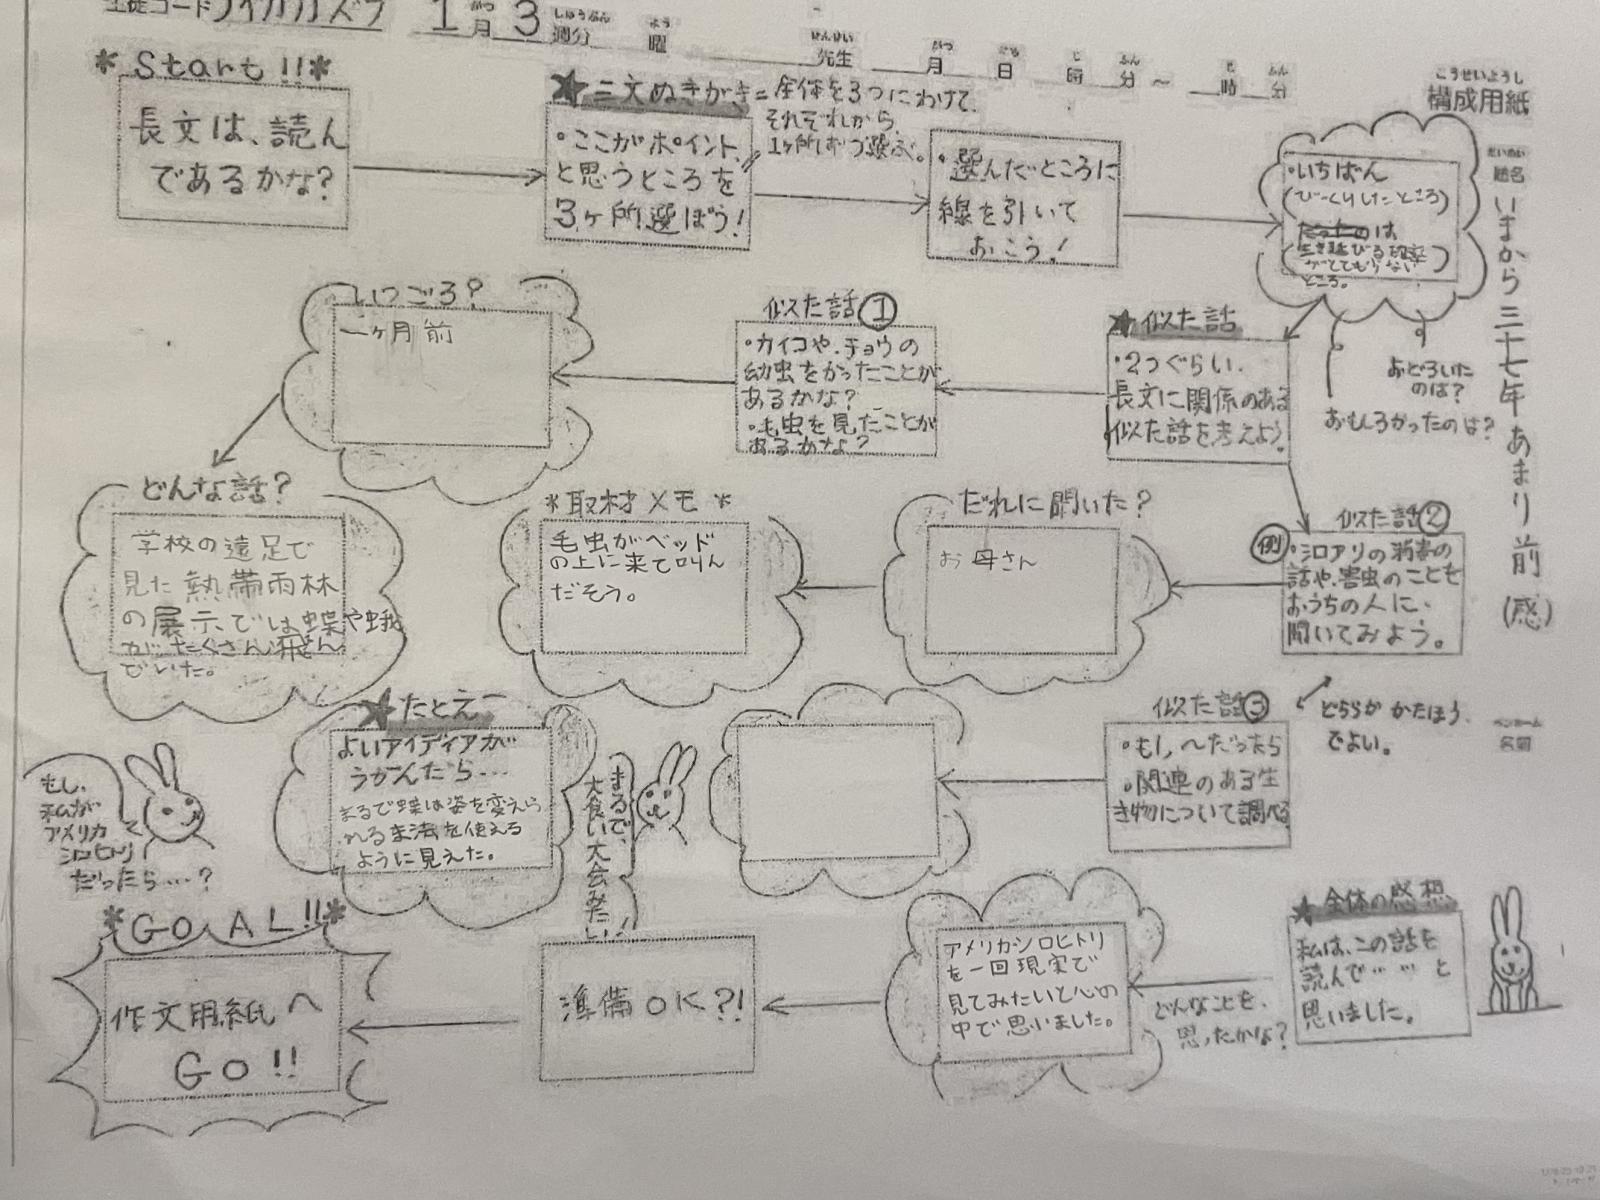 生徒コード
1月3週分
曜
先生
月 日 時 分 〜 時 分
こうせいようし
構成用紙
だいめい
題名
いまから三十七年あまり前(感)
ペンネーム
名前
*Start!!*
長文は、読ん
であるかな?
★三文ぬきがき=全体を3つにわけて、
それぞれから
1ヶ所ずつ選ぶ。
・ここがポイント、
と思うところを
3ヶ所選ぼう!
・選んだところに
線を引いて
おこう!
・いちばん
(びっくりしたところ)
は
(生き延びる確率
がとても少ない)
ところ。
おどろいた
のは?
おもしろかったのは?
★似た話
・2つぐらい、
長文に関係のある
似た話を考えよう。
似た話①
・カイコや、チョウの
幼虫をかったことが
あるかな?
・毛虫を見たことが
あるかな?
いつごろ?
一ヶ月前
どんな話?
学校の遠足で
見た熱帯雨林
の展示では蝶や蛾
がたくさん飛ん
でいた。
似た話②
例
・シロアリの消毒の
話や、害虫のことを
おうちの人に、
聞いてみよう。
だれに聞いた?
お母さん
*取材メモ*
毛虫がベッド
の上に来て叫ん
だそう。
どちらかかたほう、
でよい。
似た話③
・もし、〜だったら
・関連のある生
き物について調べる
★たとえ
よいアイディアが
うかんだら…
まるで蝶は姿を変えら
れる魔法を使える
ように見えた。
まるで、
大食い大会みたい!
もし、
私が
アメリカ
シロヒトリ
だったら…?
★全体の感想
私は、この話を
読んで……と
思いました。
どんなことを、
思ったかな?
アメリカシロヒトリ
を一回現実で
見てみたいと心の
中で思いました。
準備OK?!
*GOAL!!*
作文用紙へ
GO!!